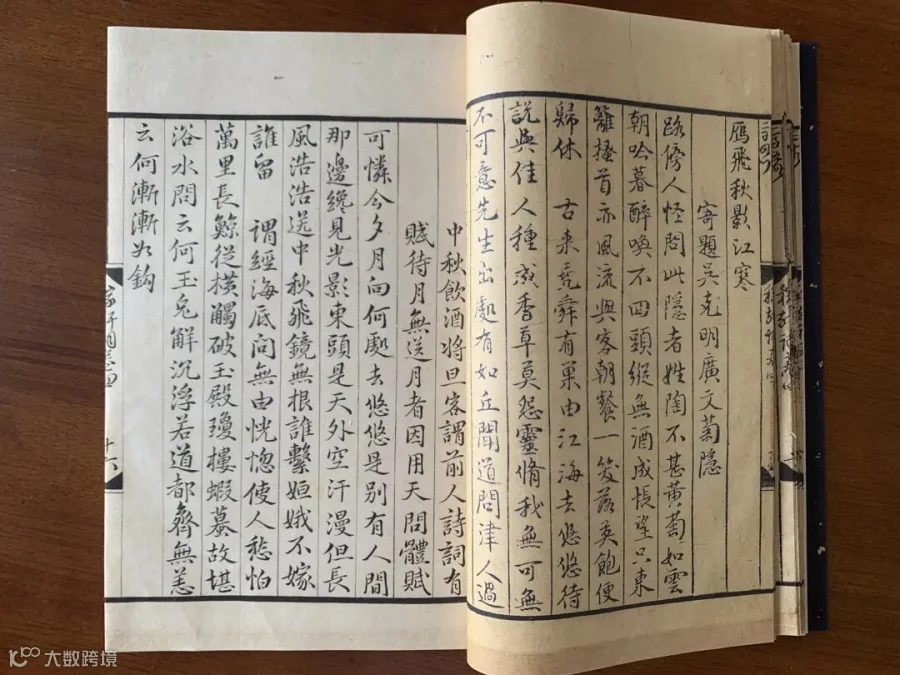 雁飛秋影江寒
寄題吳克明廣文菊隱
路傍人怪問此隱者姓陶不甚黃菊如雲
朝吟暮醉喚不回頭縱無酒成悵望只東
籬搔首亦風流與客朝餐一笑落英飽便
歸休 古来堯舜有巢由江海去悠悠待
說與佳人種成香草莫怨靈脩我無可無
不可意先生出處有如丘聞道問津人過
中秋飲酒將旦客謂前人詩詞有
賦待月無送月者因用天問體賦
可憐今夕月向何處去悠悠是別有人間
那邊纔見光影東頭是天外空汗漫但長
風浩浩送中秋飛鏡無根誰繫姮娥不嫁
誰留 謂經海底問無由恍惚使人愁怕
萬里長鯨從橫觸破玉殿瓊樓蝦蟇故堪
浴水問云何玉兔解沉浮若道都齊無恙
云何漸漸如鈎
十六
大数跨境